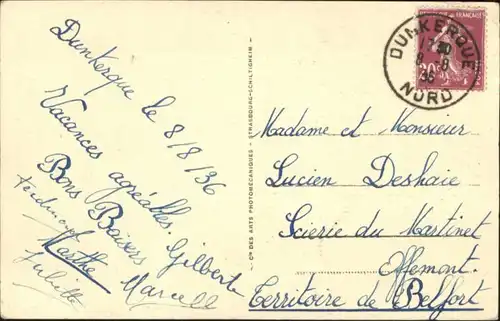 Dunkerque le 8/8/36
Vacances agréables.
Bons Baisers
Gilberte
Ferdinand
Marthe
Marcell
Juliette
Cie DES ARTS PHOTOMÉCANIQUES - STRASBOURG-SCHILTIGHEIM
DUNKERQUE
8-8
36
NORD
20c
Madame et Monsieur
Lucien Deshaie
Scierie du Martinet
Effemont.
Territoire de Belfort